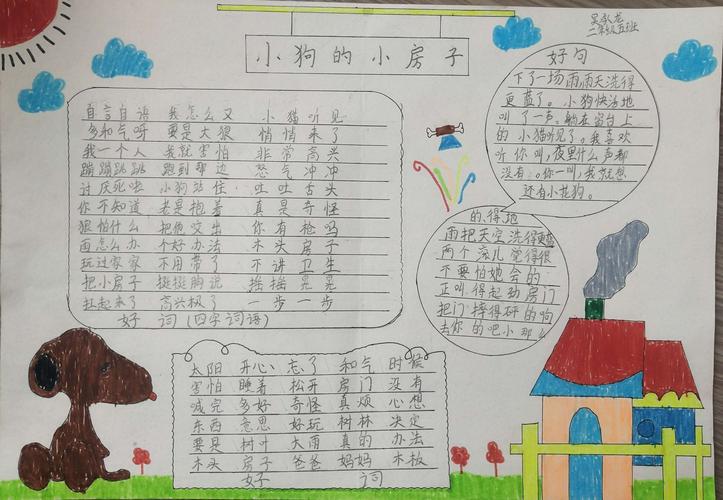 小狗的小房子
二年级五班
自言自语 我怎么又 小猫听见
多和气呀 要是大狼 悄悄来了
我一个人 我就害怕 非常高兴
蹦蹦跳跳 跑到那边 怒气冲冲
讨厌死啦 小狗站住 吐吐舌头
你不知道 老是抱着 真是奇怪
狼怕什么 把他咬出 你有枪吗
面怎么办 个好办法 木头房子
玩过家家 不用带了 不讲卫生
把小房子 挺挺胸说 摇摇晃晃
扛起来了 高兴极了 一步一步
好词(四字词语)
好句
下了一场雨,雨天洗得
更蓝了。小狗快活地
叫了一声。躺在窗台上
的小猫听见了。我喜欢
听你叫,夜里什么声都
没有。你一叫,我就想
还有小花狗。
的得地
雨把天空洗得更蓝
两个滚儿 觉得很
不要怕她会的
正叫得起劲房门
把门摔得砰的响
去你的吧小那么
太阳 开心 忘了 和气 时候
害怕 睡着 松开 房门 没有
喊完 多好 奇怪 真烦 心想
东西 意思 好玩 树林 决定
要是 树叶 大雨 真的 办法
木头 房子 爸爸 妈妈 木板
好词